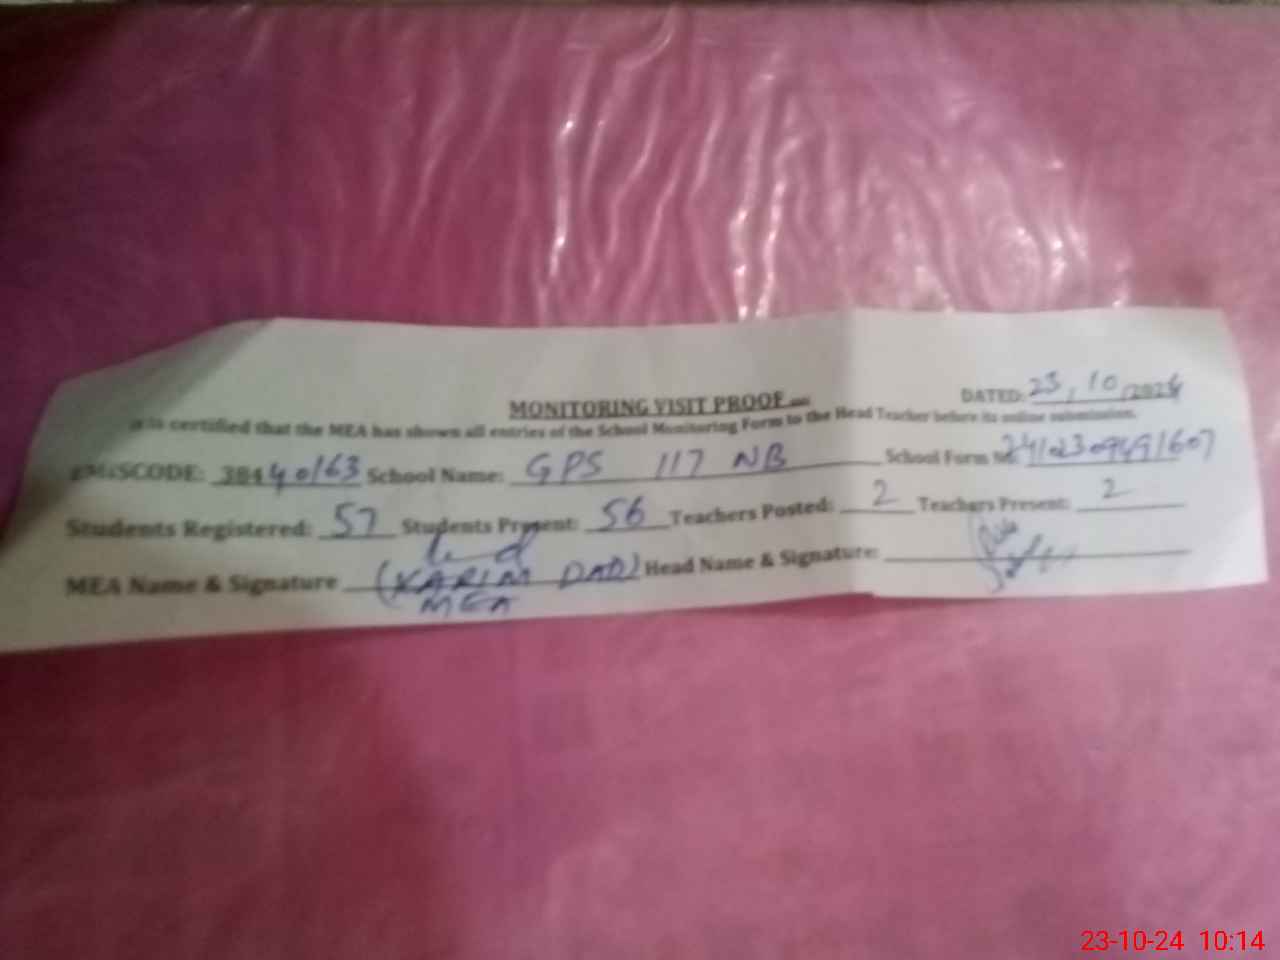 DATED: 23, 10, 2024
MONITORING VISIT PROOF
It is certified that the MEA has shown all entries of the School Monitoring Form to the Head Teacher before its online submission.
EMISCODE: 38440163 School Name: GPS 117 NB School Form No.
Students Registered: 57 Students Present: 56 Teachers Posted: 2 Teachers Present: 2
MEA Name & Signature (KARIM DAD) Head Name & Signature:
MEA
23-10-24 10:14